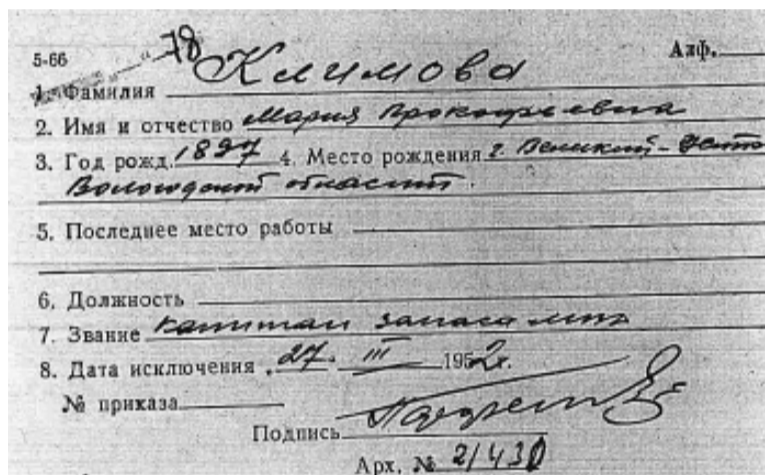 5-66 78 Алф.
1. Фамилия Климова
2. Имя и отчество Мария Прокофьевна
3. Год рожд. 1897 4. Место рождения г. Великий-Устюг
Вологодской области.
5. Последнее место работы
6. Должность
7. Звание капитан запаса
8. Дата исключения 27. III 1952г.
№ приказа
Подпись
Арх. № 21430